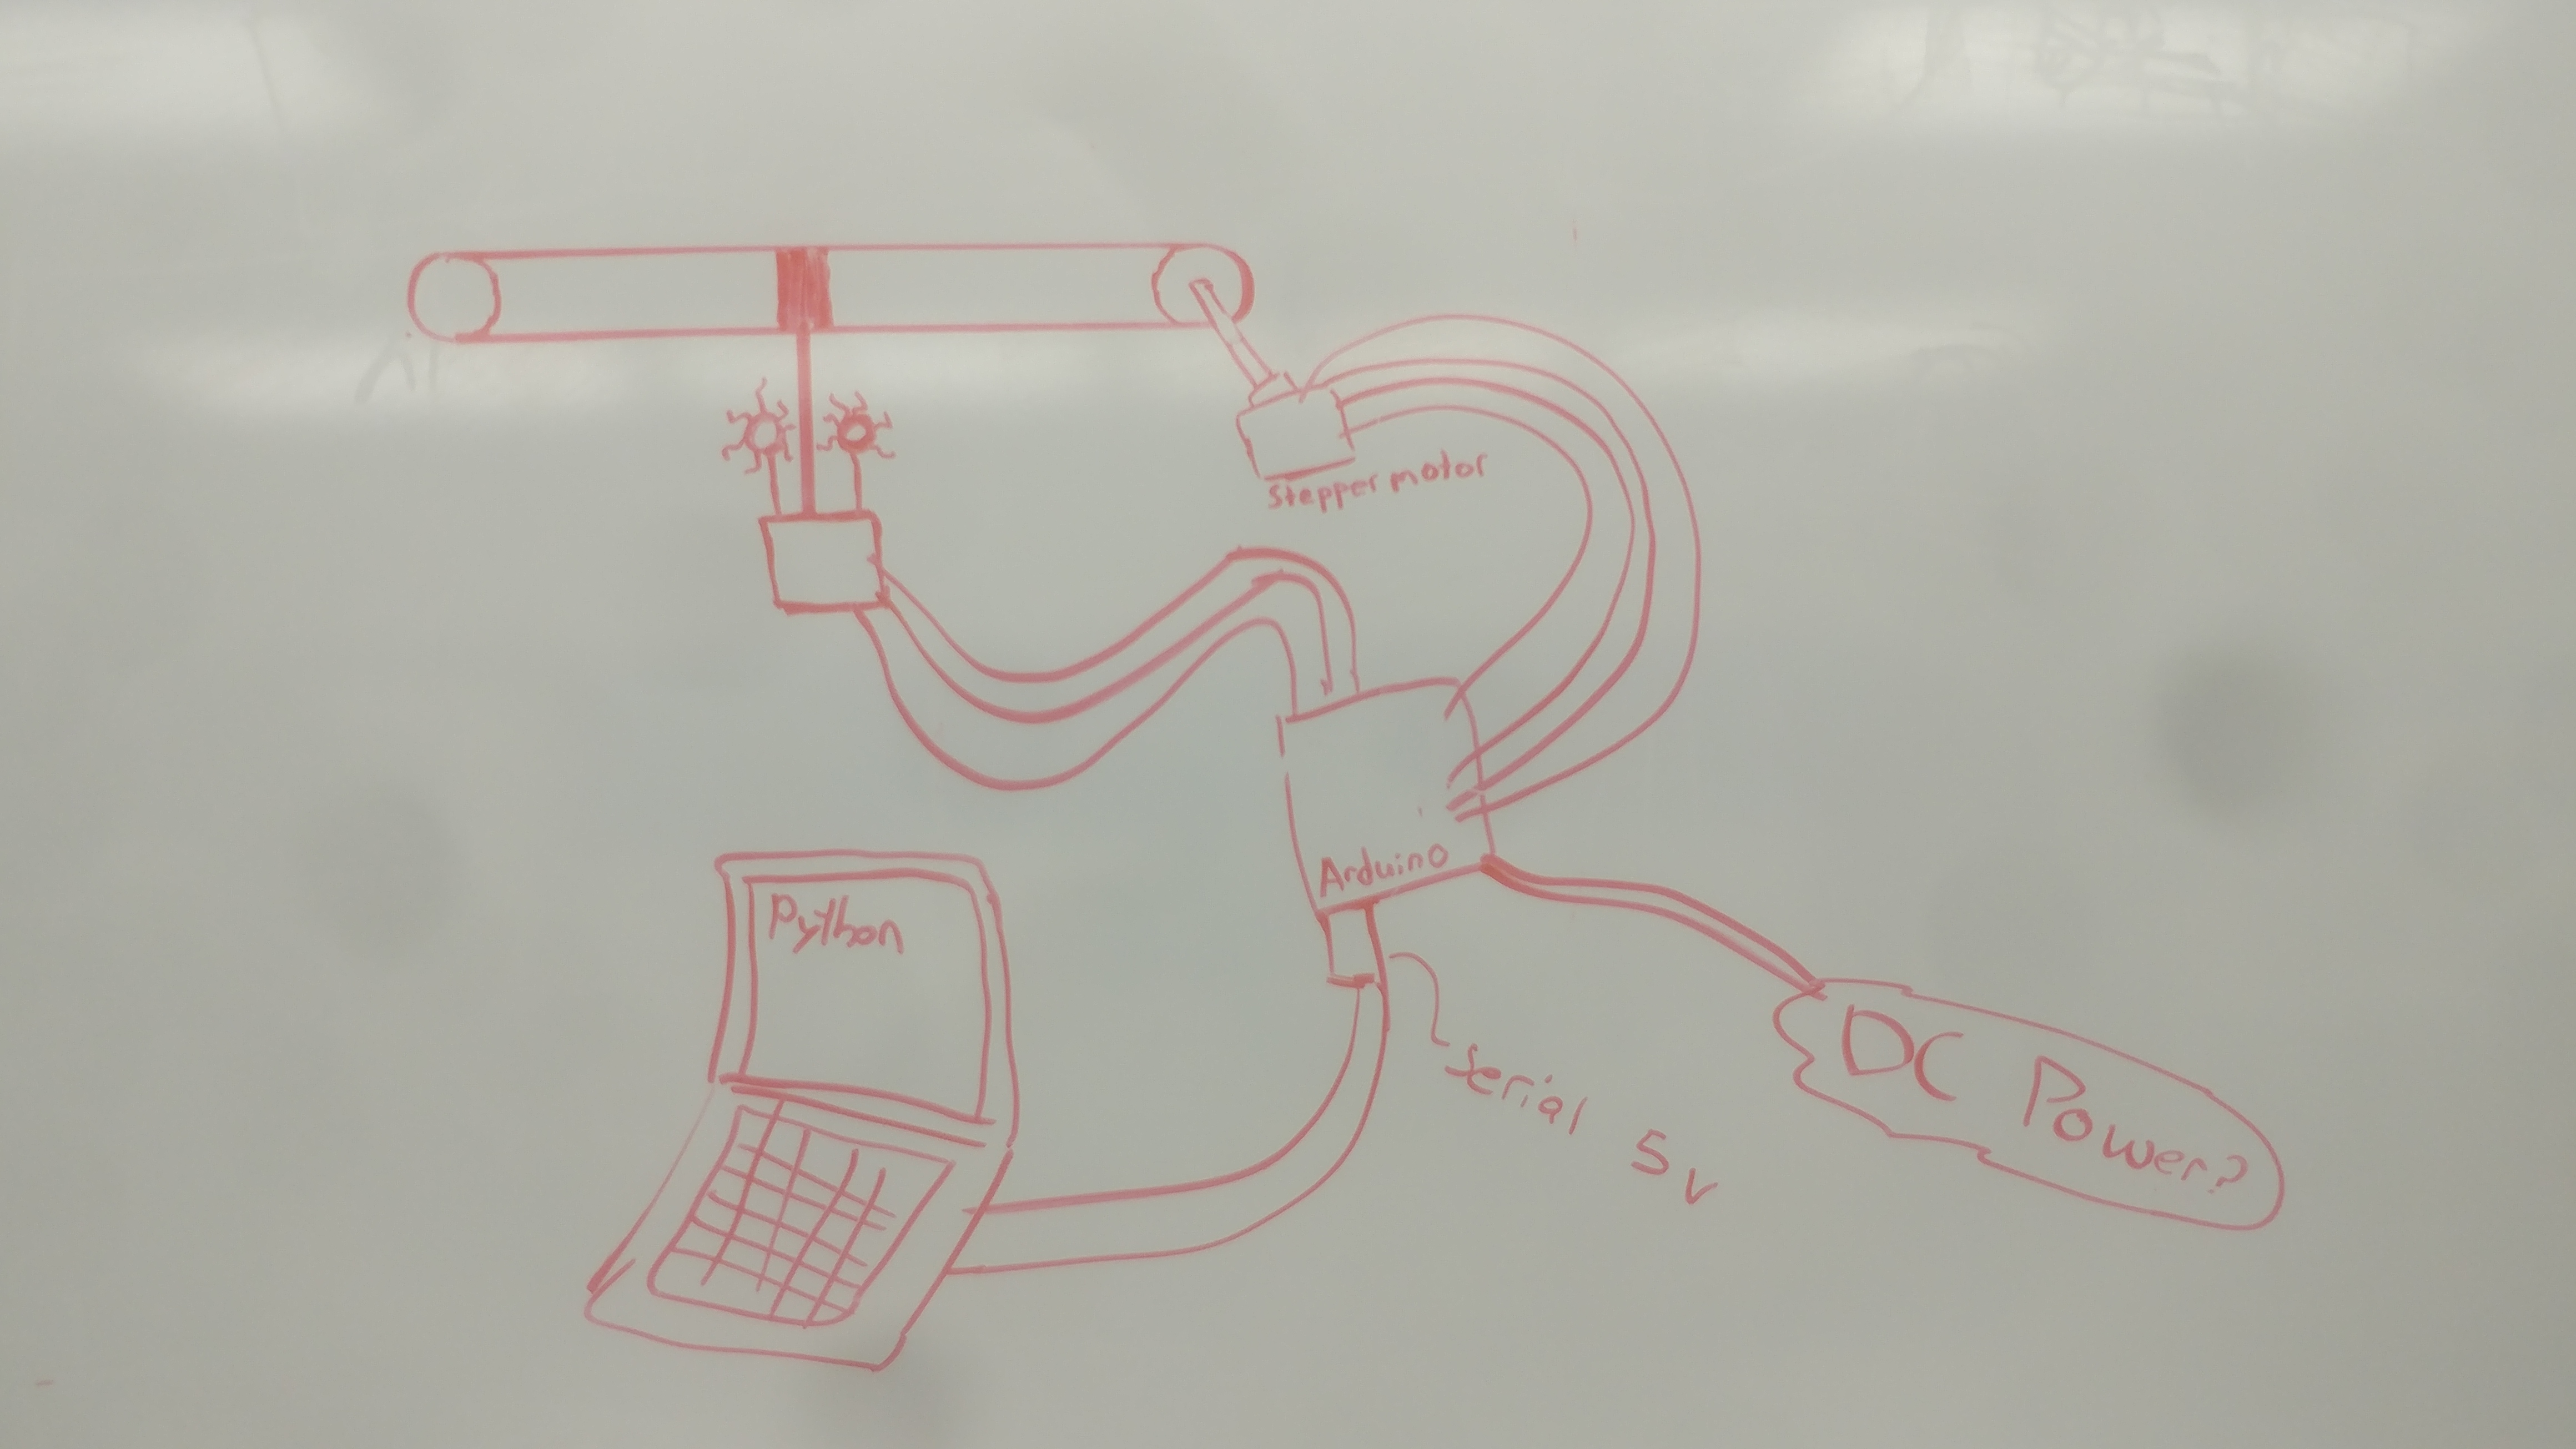 Stepper motor
Arduino
Python
Serial 5v
DC Power?